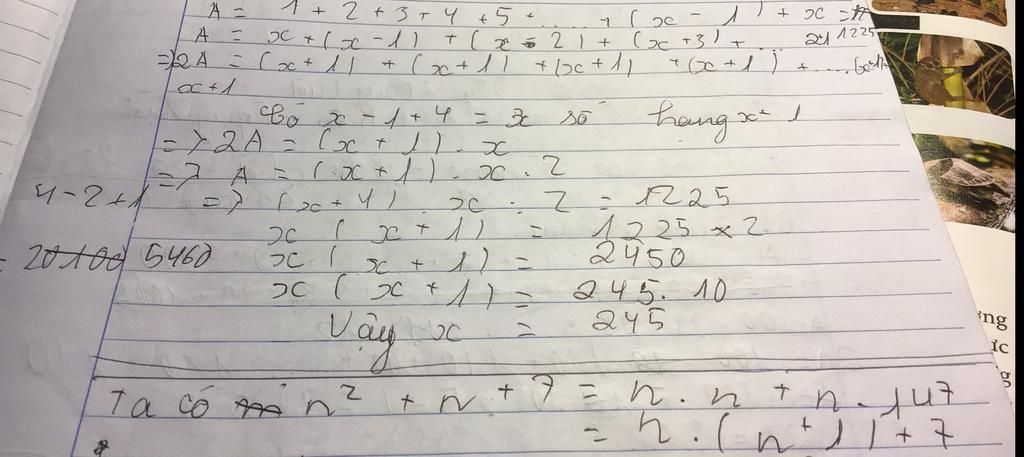 A = 1 + 2 + 3 + 4 + 5 + .... + ( x - 1 ) + x =
A = x + ( x - 1 ) + ( x - 2 ) + ( x + 3 ) + ... 2+1 1225
=> 2A = ( x + 1 ) + ( x + 1 ) + ( x + 1 ) + ( x + 1 ) + ....
x + 1
Có x - 1 + 4 = x số hạng x+ 1
=> 2A = ( x + 1 ) . x
=> A = ( x + 1 ) . x : 2
4 - 2 + 1 => ( x + 4 ) . x : 2 = 1225
x ( x + 1 ) = 1225 x 2
= 20100 5460 x ( x + 1 ) = 2450
x ( x + 1 ) = 245. 10
Vậy x = 245
Ta có n² + n + 7 = n . n + n . 1+7
= n . ( n + 1 ) + 7